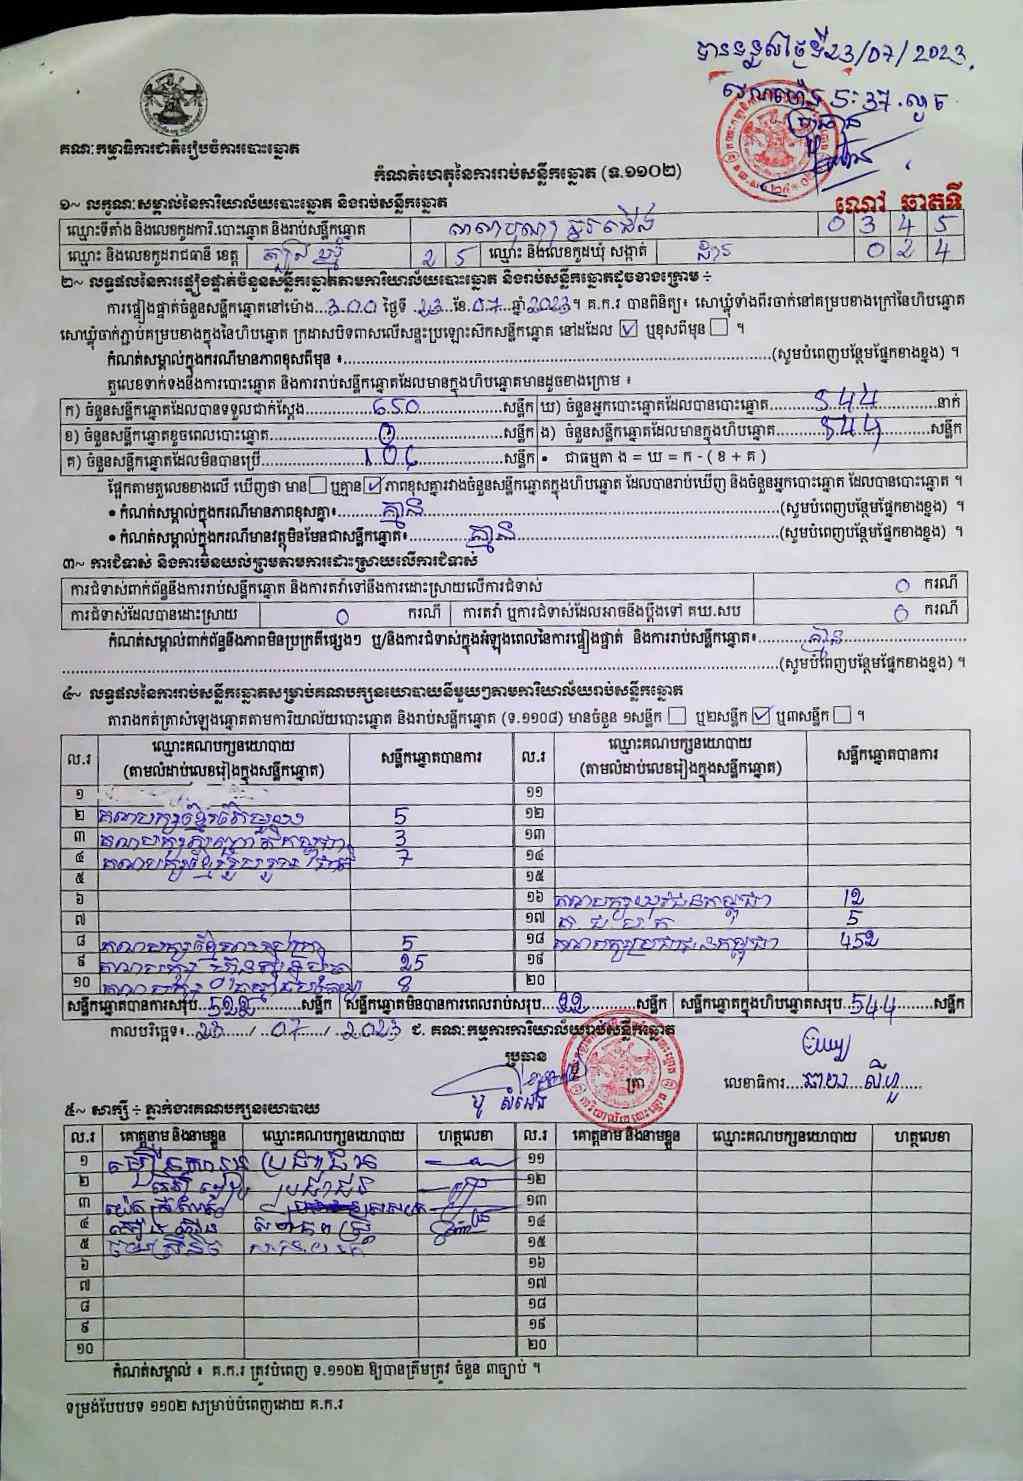 បានទទួលថ្ងៃទី23/07/2023
វេលាម៉ោង 5:37 ល្ងាច
ប្រធាន
គណៈកម្មាធិការជាតិរៀបចំការបោះឆ្នោត
កំណត់ហេតុនៃការរាប់សន្លឹកឆ្នោត (ទ.១១០២)
១~ លក្ខណៈសម្គាល់នៃការិយាល័យបោះឆ្នោត និងរាប់សន្លឹកឆ្នោត
ឈ្មោះទីតាំង និងលេខកូដការិ.បោះឆ្នោត និងរាប់សន្លឹកឆ្នោត 0 3 4 5
ឈ្មោះ និងលេខកូដរាជធានី ខេត្ត ត្បូងឃ្មុំ 2 5 ឈ្មោះ និងលេខកូដឃុំ សង្កាត់ 0 2 4
២~ លទ្ធផលនៃការផ្ទៀងផ្ទាត់ចំនួនសន្លឹកឆ្នោតតាមការិយាល័យបោះឆ្នោត និងរាប់សន្លឹកឆ្នោតដូចខាងក្រោម ÷
ការផ្ទៀងផ្ទាត់ចំនួនសន្លឹកឆ្នោតនៅម៉ោង...3:00 ថ្ងៃទី ..23..ខែ.07..ឆ្នាំ2023។ គ.ក.រ បានពិនិត្យ៖ សោឃ្លុំទាំងពីរចាក់នៅគម្របខាងក្រៅនៃហិបឆ្នោត
សោឃ្លុំចាក់ភ្ជាប់គម្របខាងក្នុងនៃហិបឆ្នោត ក្រដាសបិទពាសលើសន្ទះប្រឡោះស៊កសន្លឹកឆ្នោត នៅដដែល ☑ ឬខុសពីមុន ☐ ។
កំណត់សម្គាល់ក្នុងករណីមានភាពខុសពីមុន ៖......(សូមបំពេញបន្ថែមផ្នែកខាងខ្នង) ។
តួលេខទាក់ទងនឹងការបោះឆ្នោត និងការរាប់សន្លឹកឆ្នោតដែលមានក្នុងហិបឆ្នោតមានដូចខាងក្រោម ៖
ក) ចំនួនសន្លឹកឆ្នោតដែលបានទទួលជាក់ស្តែង......650......សន្លឹក ឃ) ចំនួនអ្នកបោះឆ្នោតដែលបានបោះឆ្នោត......544......នាក់
ខ) ចំនួនសន្លឹកឆ្នោតខូចពេលបោះឆ្នោត......0......សន្លឹក ង) ចំនួនសន្លឹកឆ្នោតដែលមានក្នុងហិបឆ្នោត......544......សន្លឹក
គ) ចំនួនសន្លឹកឆ្នោតដែលមិនបានប្រើ......106......សន្លឹក • ជាធម្មតា ង = ឃ = ក - ( ខ + គ )
ផ្អែកតាមតួលេខខាងលើ ឃើញថា មាន ☐ ឬគ្មាន ☑ ភាពខុសគ្នារវាងចំនួនសន្លឹកឆ្នោតក្នុងហិបឆ្នោត ដែលបានរាប់ឃើញ និងចំនួនអ្នកបោះឆ្នោត ដែលបានបោះឆ្នោត ។
• កំណត់សម្គាល់ក្នុងករណីមានភាពខុសគ្នា៖......គ្មាន......(សូមបំពេញបន្ថែមផ្នែកខាងខ្នង) ។
• កំណត់សម្គាល់ក្នុងករណីមានវត្ថុមិនមែនជាសន្លឹកឆ្នោត៖......គ្មាន......(សូមបំពេញបន្ថែមផ្នែកខាងខ្នង) ។
៣~ ការជំទាស់ និងការមិនយល់ព្រមតាមការដោះស្រាយលើការជំទាស់
ការជំទាស់ពាក់ព័ន្ធនឹងការរាប់សន្លឹកឆ្នោត និងការតវ៉ាទៅនឹងការដោះស្រាយលើការជំទាស់ 0 ករណី
ការជំទាស់ដែលបានដោះស្រាយ 0 ករណី ការតវ៉ា ឬការជំទាស់ដែលអាចនឹងប្តឹងទៅ គឃ.សប 0 ករណី
កំណត់សម្គាល់ពាក់ព័ន្ធនឹងភាពមិនប្រក្រតីផ្សេងៗ ឬ/និងការជំទាស់ក្នុងអំឡុងពេលនៃការផ្ទៀងផ្ទាត់ និងការរាប់សន្លឹកឆ្នោត៖......គ្មាន......
......(សូមបំពេញបន្ថែមផ្នែកខាងខ្នង) ។
៤~ លទ្ធផលនៃការរាប់សន្លឹកឆ្នោតសម្រាប់គណបក្សនយោបាយនីមួយៗតាមការិយាល័យរាប់សន្លឹកឆ្នោត
តារាងកត់ត្រាសំឡេងឆ្នោតតាមការិយាល័យបោះឆ្នោត និងរាប់សន្លឹកឆ្នោត (ទ.១១០៨) មានចំនួន ១សន្លឹក ☐ ឬ២សន្លឹក ☑ ឬ៣សន្លឹក ☐ ។
ល.រ ឈ្មោះគណបក្សនយោបាយ (តាមលំដាប់លេខរៀងក្នុងសន្លឹកឆ្នោត) សន្លឹកឆ្នោតបានការ ល.រ ឈ្មោះគណបក្សនយោបាយ (តាមលំដាប់លេខរៀងក្នុងសន្លឹកឆ្នោត) សន្លឹកឆ្នោតបានការ
១ ១១
២ គណបក្ស 5 ១២
៣ គណបក្ស 3 ១៣
៤ គណបក្សខ្មែររួបរួមជាតិ 7 ១៤
៥ ១៥
៦ ១៦ គណបក្សយុវជនកម្ពុជា 12
៧ ១៧ 5
៨ គណបក្ស 5 ១៨ គណបក្សប្រជាជនកម្ពុជា 452
៩ គណបក្សហ៊្វុនស៊ិនប៉ិច 25 ១៩
១០ គណបក្ស 8 ២០
សន្លឹកឆ្នោតបានការសរុប..522......សន្លឹក សន្លឹកឆ្នោតមិនបានការពេលរាប់សរុប..22......សន្លឹក សន្លឹកឆ្នោតក្នុងហិបឆ្នោតសរុប..544......សន្លឹក
កាលបរិច្ឆេទ៖..23..../..07..../..2023 ជ. គណៈកម្មការការិយាល័យរាប់សន្លឹកឆ្នោត
ប្រធាន ត្រា លេខាធិការ
៥~ សាក្សី ÷ ភ្នាក់ងារគណបក្សនយោបាយ
ល.រ គោត្តនាម និងនាមខ្លួន ឈ្មោះគណបក្សនយោបាយ ហត្ថលេខា ល.រ គោត្តនាម និងនាមខ្លួន ឈ្មោះគណបក្សនយោបាយ ហត្ថលេខា
១ ប្រជាជន ១១
២ ប្រជាជន ១២
៣ ១៣
៤ ១៤
៥ ១៥
៦ ១៦
៧ ១៧
៨ ១៨
៩ ១៩
១០ ២០
កំណត់សម្គាល់ ៖ គ.ក.រ ត្រូវបំពេញ ទ.១១០២ ឱ្យបានត្រឹមត្រូវ ចំនួន ៣ច្បាប់ ។
ទម្រង់បែបបទ ១១០២ សម្រាប់បំពេញដោយ គ.ក.រ